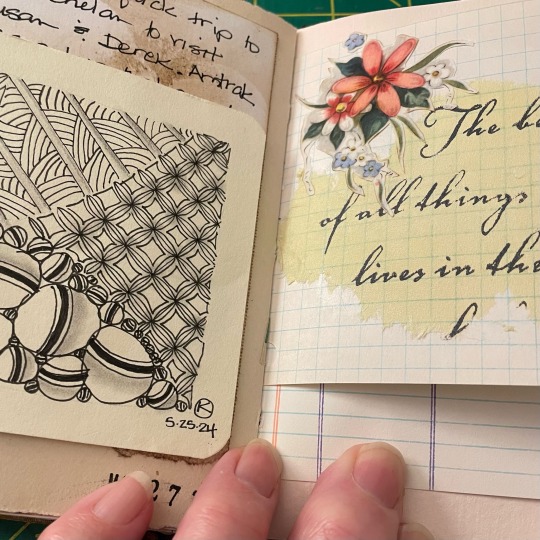 ack trip to
helan to visit
usan & Derek. Amtrak
K
5-25-24
27
The be
of all things
lives in the